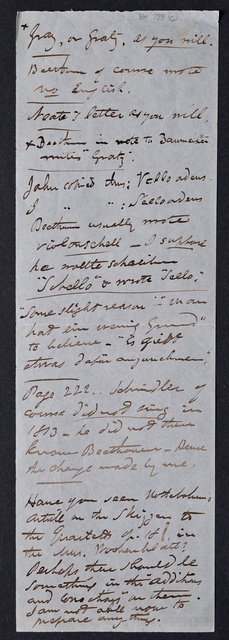 BH 229 (c)
+ Gray, or Gratz, as you will.
Beethoven of course wrote
no English.
Note 7 better as you will.
+ Beethoven in note to Baumeister
writes "Gratz".
Jahn copied thus; Vcllo
I " " :
Beethoven usually wrote
violonschell — I suppose
he wollte schreiben
"Schello" & wrote "Sello."
"Some slight reason" = "man
had ein wenig Grund"
to believe — "Es gibt
etwas dafür anzunehmen"
Page 222. Schindler of
course did not sing in
1813 — he did not then
know Beethoven — Hence
the change made by me.
Have you seen Nottebohm's
article on the Skizzen to
the Quartetts Op. 18, in
the Mus. Wochenblatt?
Perhaps there should be
something in the additions
and corrections on them.
I am not able now to
prepare anything.